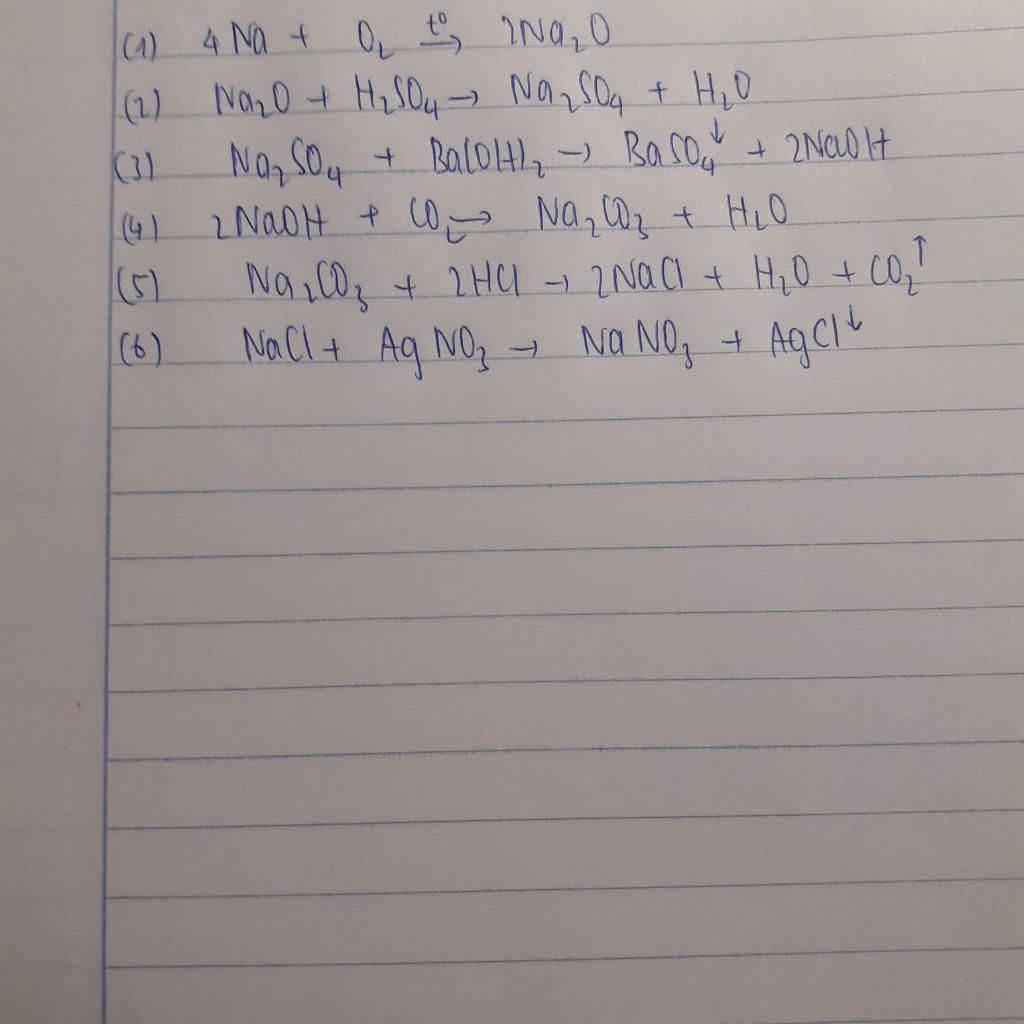 (1) 4Na + O₂ t°→ 2Na₂O
(2) Na₂O + H₂SO₄ → Na₂SO₄ + H₂O
(3) Na₂SO₄ + Ba(OH)₂ → BaSO₄↓ + 2NaOH
(4) 2NaOH + CO₂ → Na₂CO₃ + H₂O
(5) Na₂CO₃ + 2HCl → 2NaCl + H₂O + CO₂↑
(6) NaCl + AgNO₃ → NaNO₃ + AgCl↓